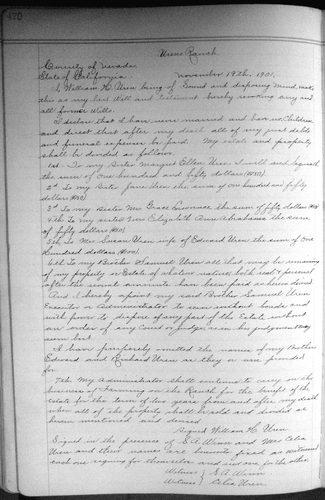 470
Urens Ranch
County of Nevada
State of California November 19th. 1901.
I William H. Uren being of Sound and disposing mind make
this as my last Will and Testament hereby revoking any and
all former Wills.
I declare that I have never married and have no Children
and direct that after my death all of my just debts
and funeral expenses be paid. My estate and property
shall be divided as follows.
1st. To my Sister Margaret Ellen Uren I will and bequeath
the sum of One hundred and fifty dollars ($150)
2d To my Sister Jane Uren the sum of One hundred and fifty
dollars ($150)
3d To my sister Mrs Grace Lawrence the sum of fifty dollars ($50)
4th To my sister Mrs Elizabeth Ann Abrahams the sum
of fifty dollars ($50)
5th To Mrs Susan Uren wife of Edward Uren the sum of One
hundred dollars ($100).
6th To my Brother Samuel Uren all that may be remaining
of my property or Estate of whatever nature both real & personal
after the sums above have been paid as herein directed
And I hereby appoint my said Brother Samuel Uren
Executor or administrator to serve without bonds and
with power to dispose of any part of the Estate without
an order of any Court or judge as in his judgment may
seem best
I have purposely omitted the names of my Brothers
Edward and Richard Uren as they are provided
for
7th My Administrator shall continue to carry on the
business of Farming on the Ranch for the benefit of the
estate for the term of two years from and after my death
when all of the property shall be sold and divided as
herein mentioned and devised
Signed William H. Uren
Signed in the presence of S.A. and Mrs Celia
Uren and their names are hereunto fixed as witnesses
each one signing for themselves and not one for the other
Witness S.A.
Witness Celia Uren